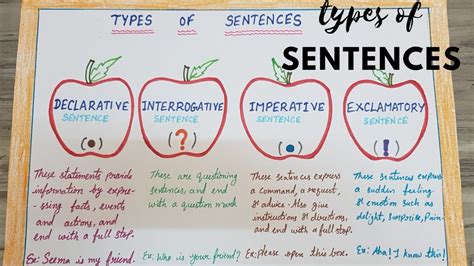 types of
SENTENCES
TYPES OF SENTENCES
DECLARATIVE
SENTENCE
(.)
INTERROGATIVE
SENTENCE
(?)
IMPERATIVE
SENTENCE
(.)
EXCLAMATORY
SENTENCE
(!)
These statements provide
information by expre-
ssing facts, events
and actions, and
end with a full stop.
Ex: Seema is my friend.
These are questioning
sentences and end
with a question mark.
Ex: Who is your friend?
These sentences express
a command, a request,
& advice - Also give
instructions & directions,
and end with a full stop.
Ex: Please open this box.
These sentences express
a sudden feeling
& emotion such as
delight, surprise, Pain.
Ex: Aha! I know this!